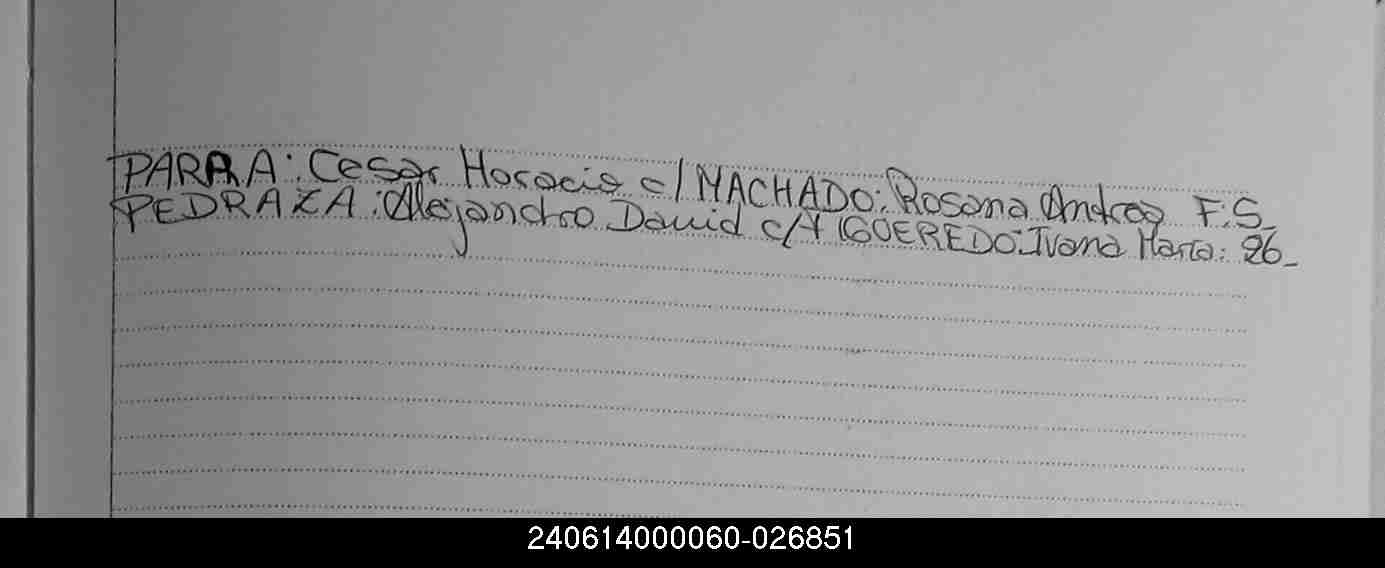 PARRA: Cesar Horacio c/ MACHADO: Rosana Andrea F:S_
PEDRAZA: Alejandro David c/ FIGUEREDO: Ivana Maria: 26_
240614000060-026851